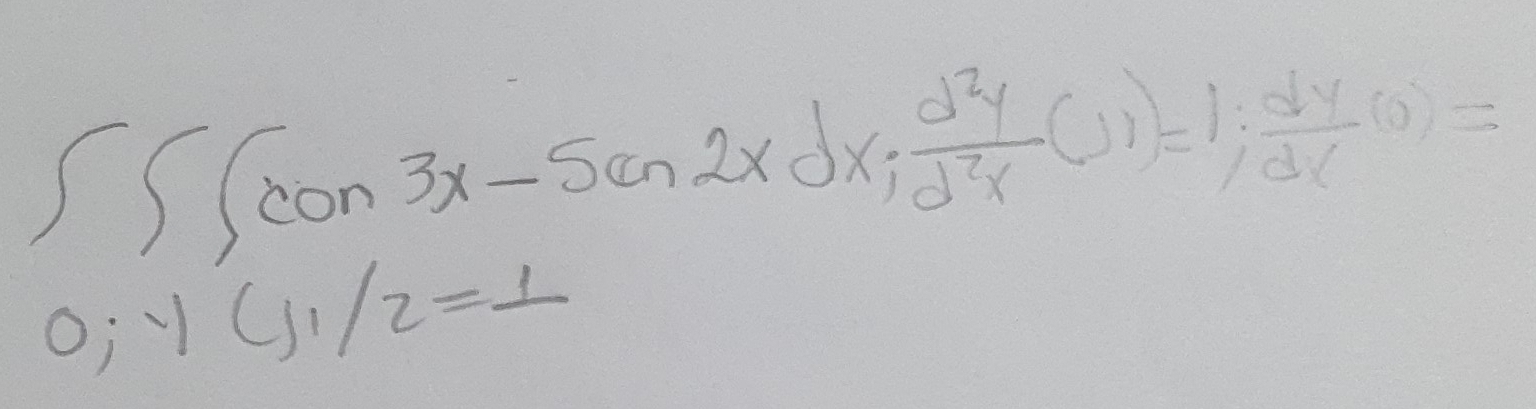 ∫∫∫con 3x-Sen 2x dx; d²y/d²x (π)=1; dy/dx (0)=
0; y (π/2=1